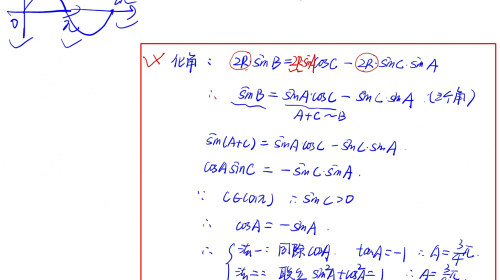 0 π 2π
化角： 2R sinB = 2R sinA cosC − 2R sinC·sinA
∴ sinB = sinA cosC − sinC sinA (三个角)
A+C ~ B
sin(A+C) = sinA cosC − sinC·sinA.
cosA sinC = − sinC·sinA.
∵ C∈(0,π) ∴ sinC>0
∴ cosA = − sinA.
∴ { 法一： 同除cosA. tanA = −1 ∴ A = 3/4 π.
法二： 联立 sin²A + cos²A = 1 ∴ A = 3/4 π.